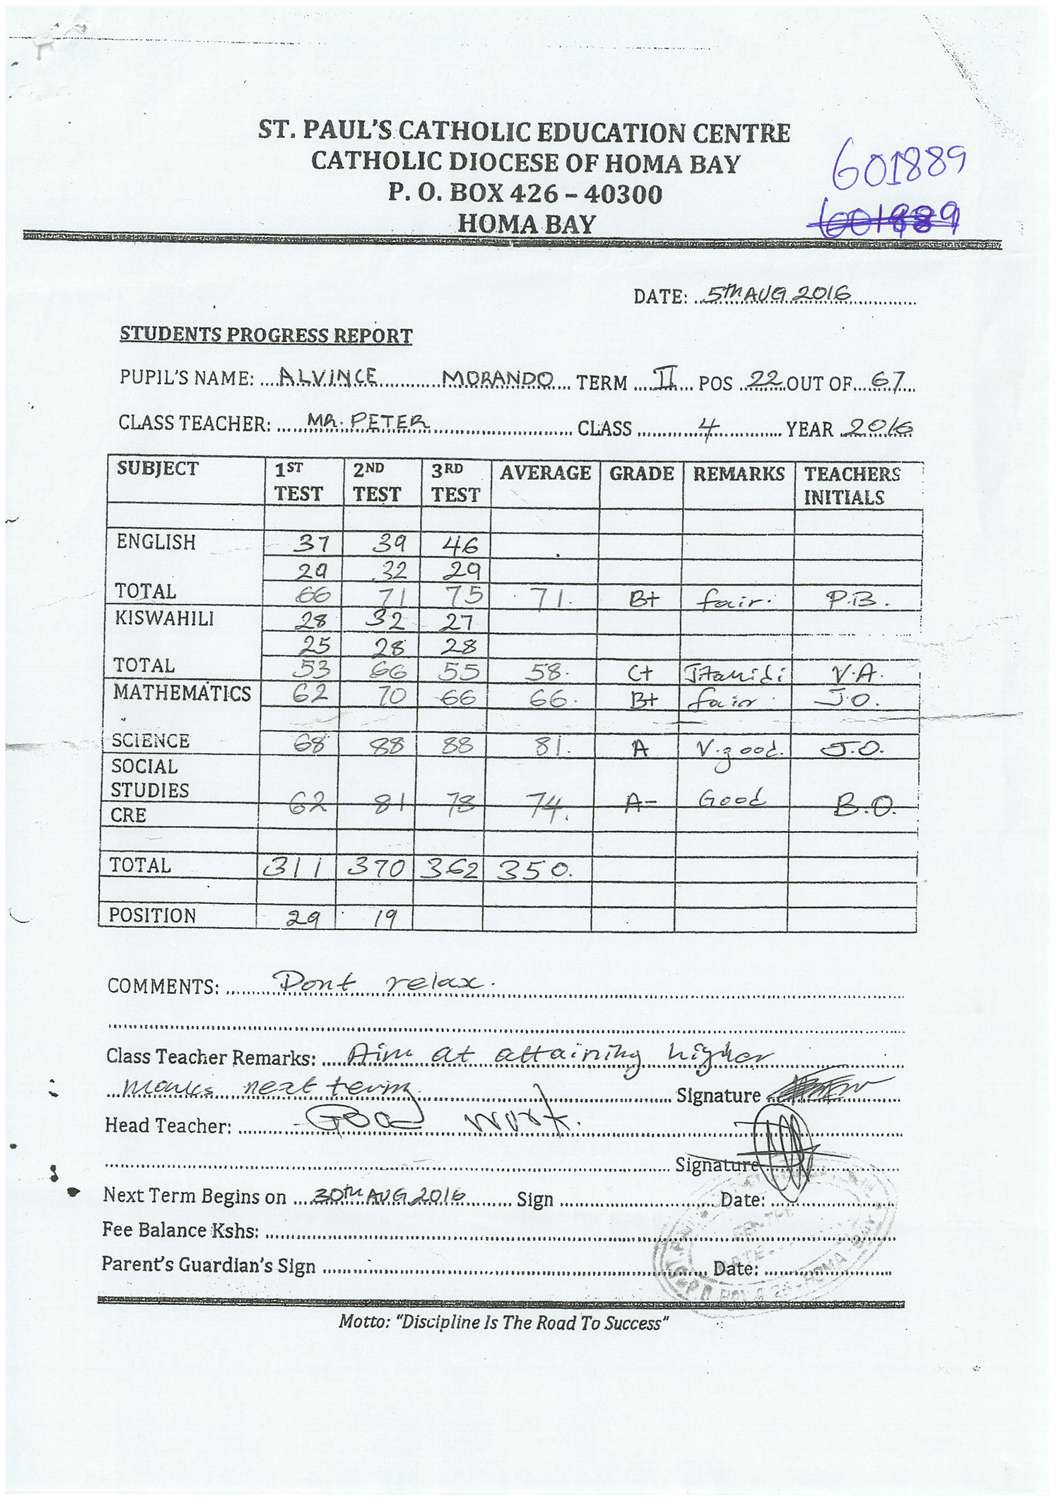 ST. PAUL'S CATHOLIC EDUCATION CENTRE
CATHOLIC DIOCESE OF HOMA BAY
P. O. BOX 426 – 40300
HOMA BAY
601889
601889
DATE: 5TH AUG 2016
STUDENTS PROGRESS REPORT
PUPIL'S NAME: ALVINCE MORANDO TERM II POS 22 OUT OF 67
CLASS TEACHER: MR. PETER CLASS 4 YEAR 2016
SUBJECT 1ST TEST 2ND TEST 3RD TEST AVERAGE GRADE REMARKS TEACHERS INITIALS
ENGLISH 37 39 46
29 32 29
TOTAL 66 71 75 71. B+ fair. P.B.
KISWAHILI 28 32 27
25 28 28
TOTAL 53 66 55 58. C+ Jitahidi V.A.
MATHEMATICS 62 70 66 66. B+ fair J.O.
SCIENCE 68 88 88 81. A V.good. J.O.
SOCIAL
STUDIES 62 81 78 74. A- Good B.O.
CRE
TOTAL 311 370 362 350.
POSITION 29 19
COMMENTS: Dont relax.
Class Teacher Remarks: Aim at attaining higher
marks next term. Signature
Head Teacher: Good work.
Signature
Next Term Begins on 30TH AUG 2016 Sign Date:
Fee Balance Kshs:
Parent's Guardian's Sign Date:
Motto: "Discipline Is The Road To Success"